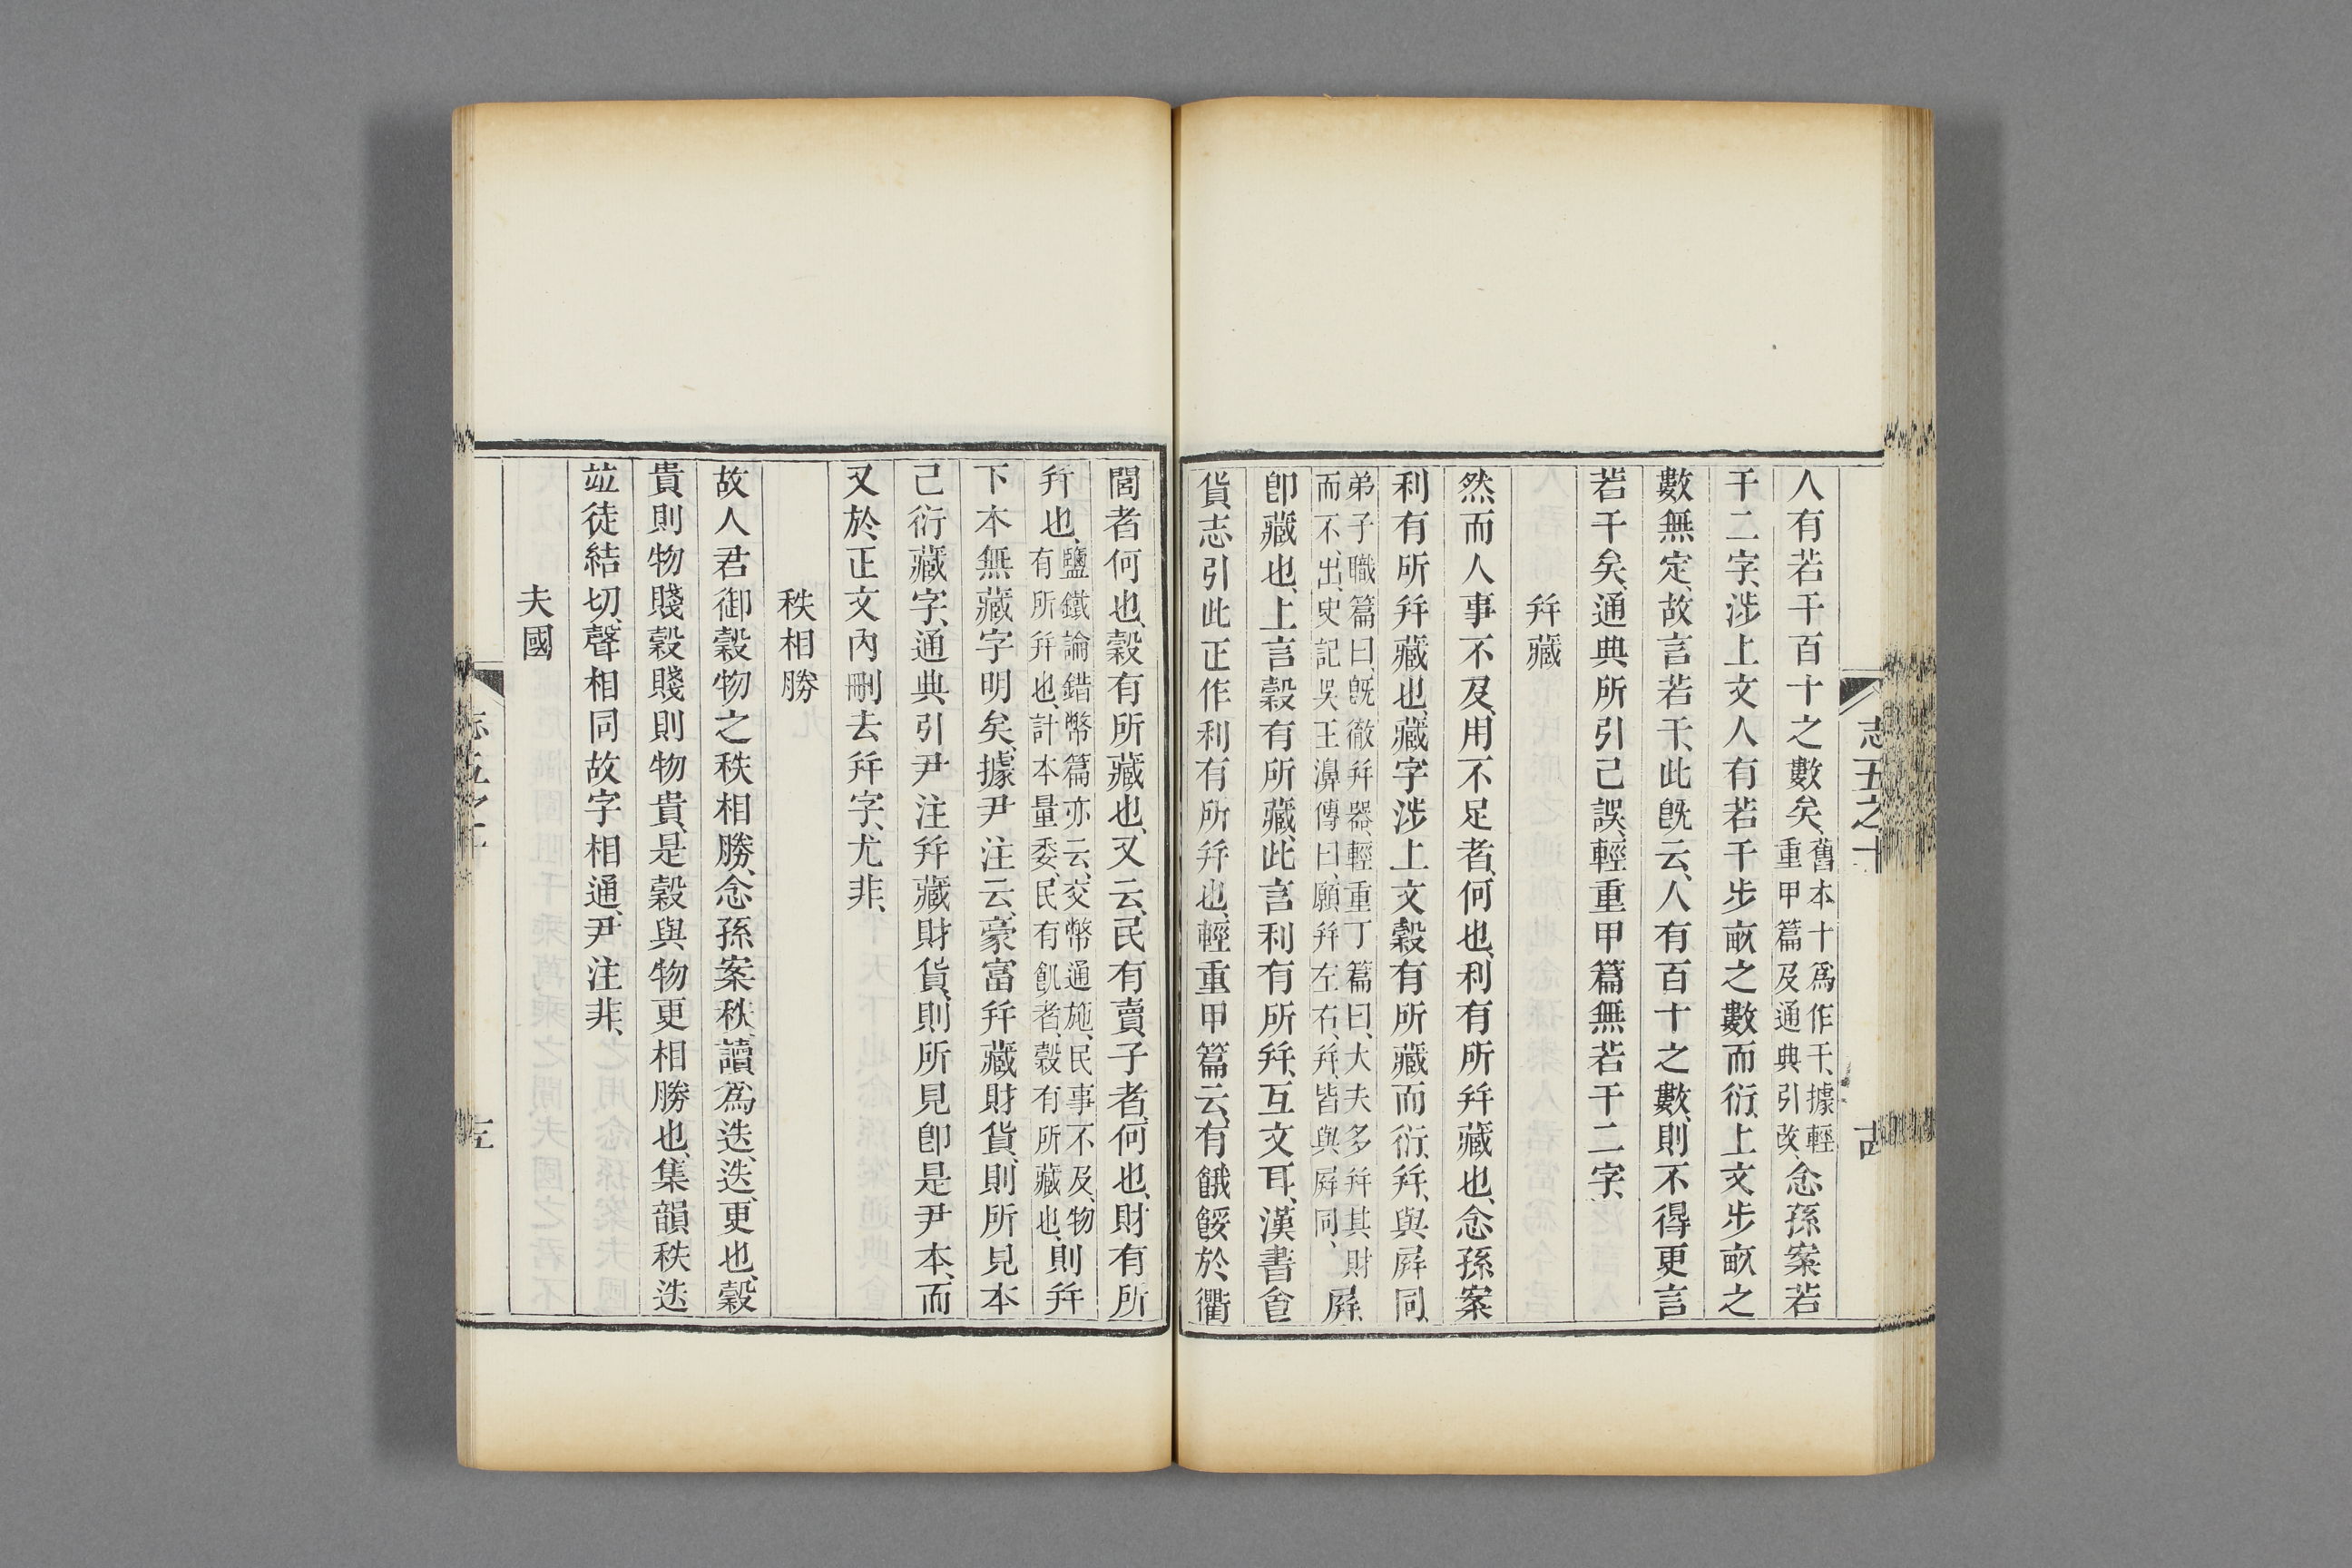 志五之十
人有若干百十之數矣、舊本十爲作干、據輕
重甲篇及通典引改、念孫案若
干二字、涉上文人有若干步畝之數而衍、上文步畝之
數無定、故言若干、此旣云、人有百十之數、則不得更言
若干矣、通典所引已誤、輕重甲篇無若干二字、
幷藏
然而人事不及、用不足者、何也、利有所幷藏也、念孫案
利有所幷藏也、藏字涉上文穀有所藏而衍、幷、與屛同、
弟子職篇曰、旣徹幷器、輕重丁篇曰、大夫多幷其財
而不出、史記吳王濞傳曰、願幷左右、幷、皆與屛同、屛、
卽藏也、上言穀有所藏、此言利有所幷、互文耳、漢書食
貨志引此正作利有所幷也、輕重甲篇云、有餓餒於衢
閭者何也、穀有所藏也、又云、民有賣子者、何也、財有所
幷也、鹽鐵論錯幣篇亦云、交幣通施、民事不及、物
有所幷也、計本量委、民有飢者、穀有所藏也、則幷
下本無藏字明矣、據尹注云、豪富幷藏財貨、則所見本
已衍藏字、通典引尹注幷藏財貨、則所見卽是尹本、而
又於正文內刪去幷字、尤非、
秩相勝
故人君御穀物之秩相勝、念孫案秩、讀爲迭、迭、更也、穀
貴則物賤、穀賤則物貴、是穀與物更相勝也、集韻秩迭
竝徒結切、聲相同、故字相通、尹注非、
夫國